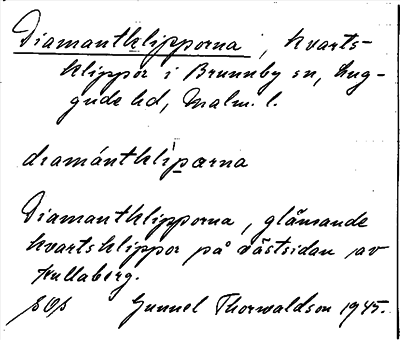 Diamantklipporna, kvarts-
klippor i Brunnby sn, Lug-
gude hd, Malm. l.
diamántklìpærna
Diamantklipporna, glänsande
kvartsklippor på västsidan av
Kullaberg.
Gunnel Thorwaldson 1945.